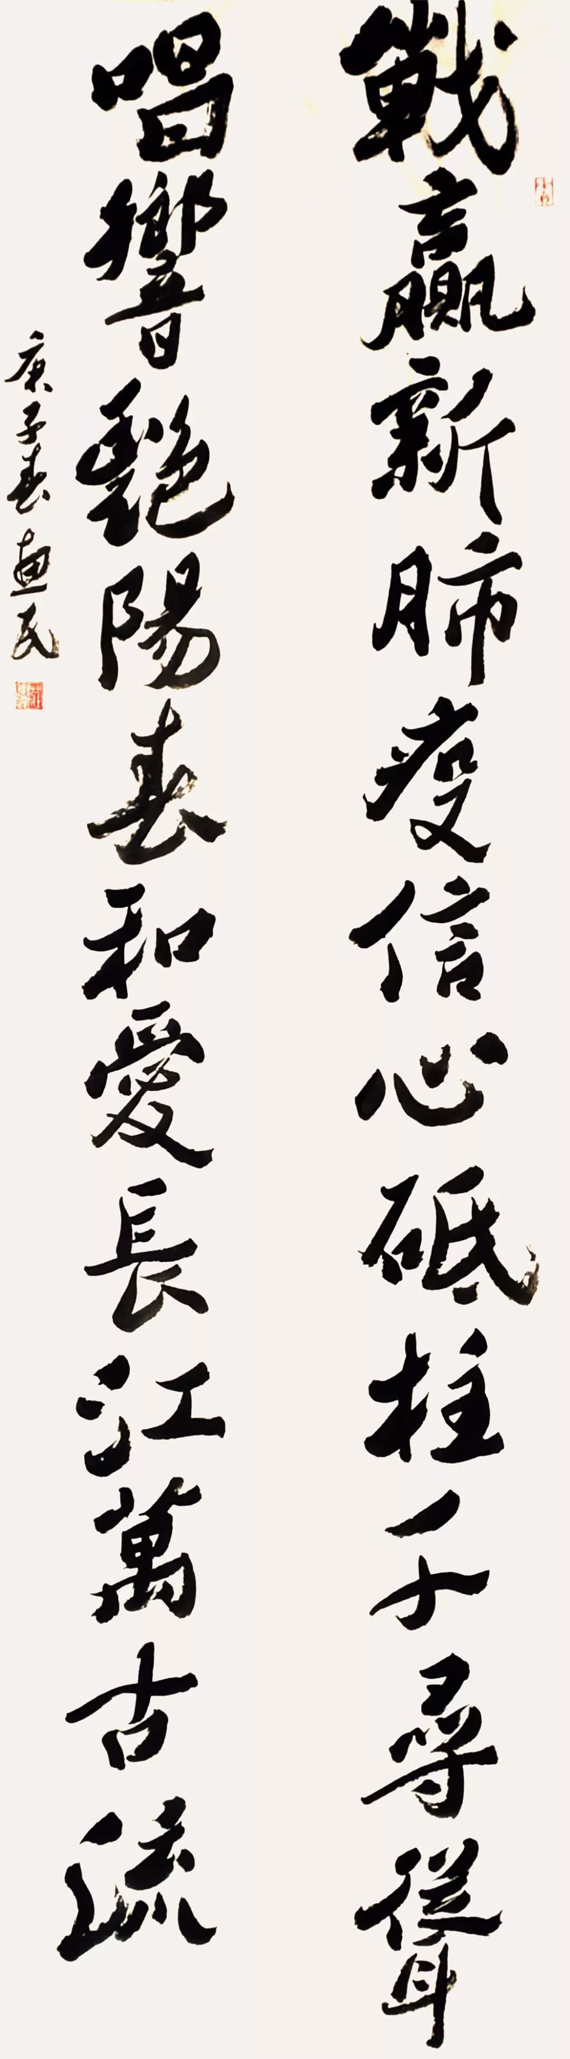 戰贏新肺疫信心砥柱千尋聳
唱響艷陽春和愛長江萬古流
庚子春惠民